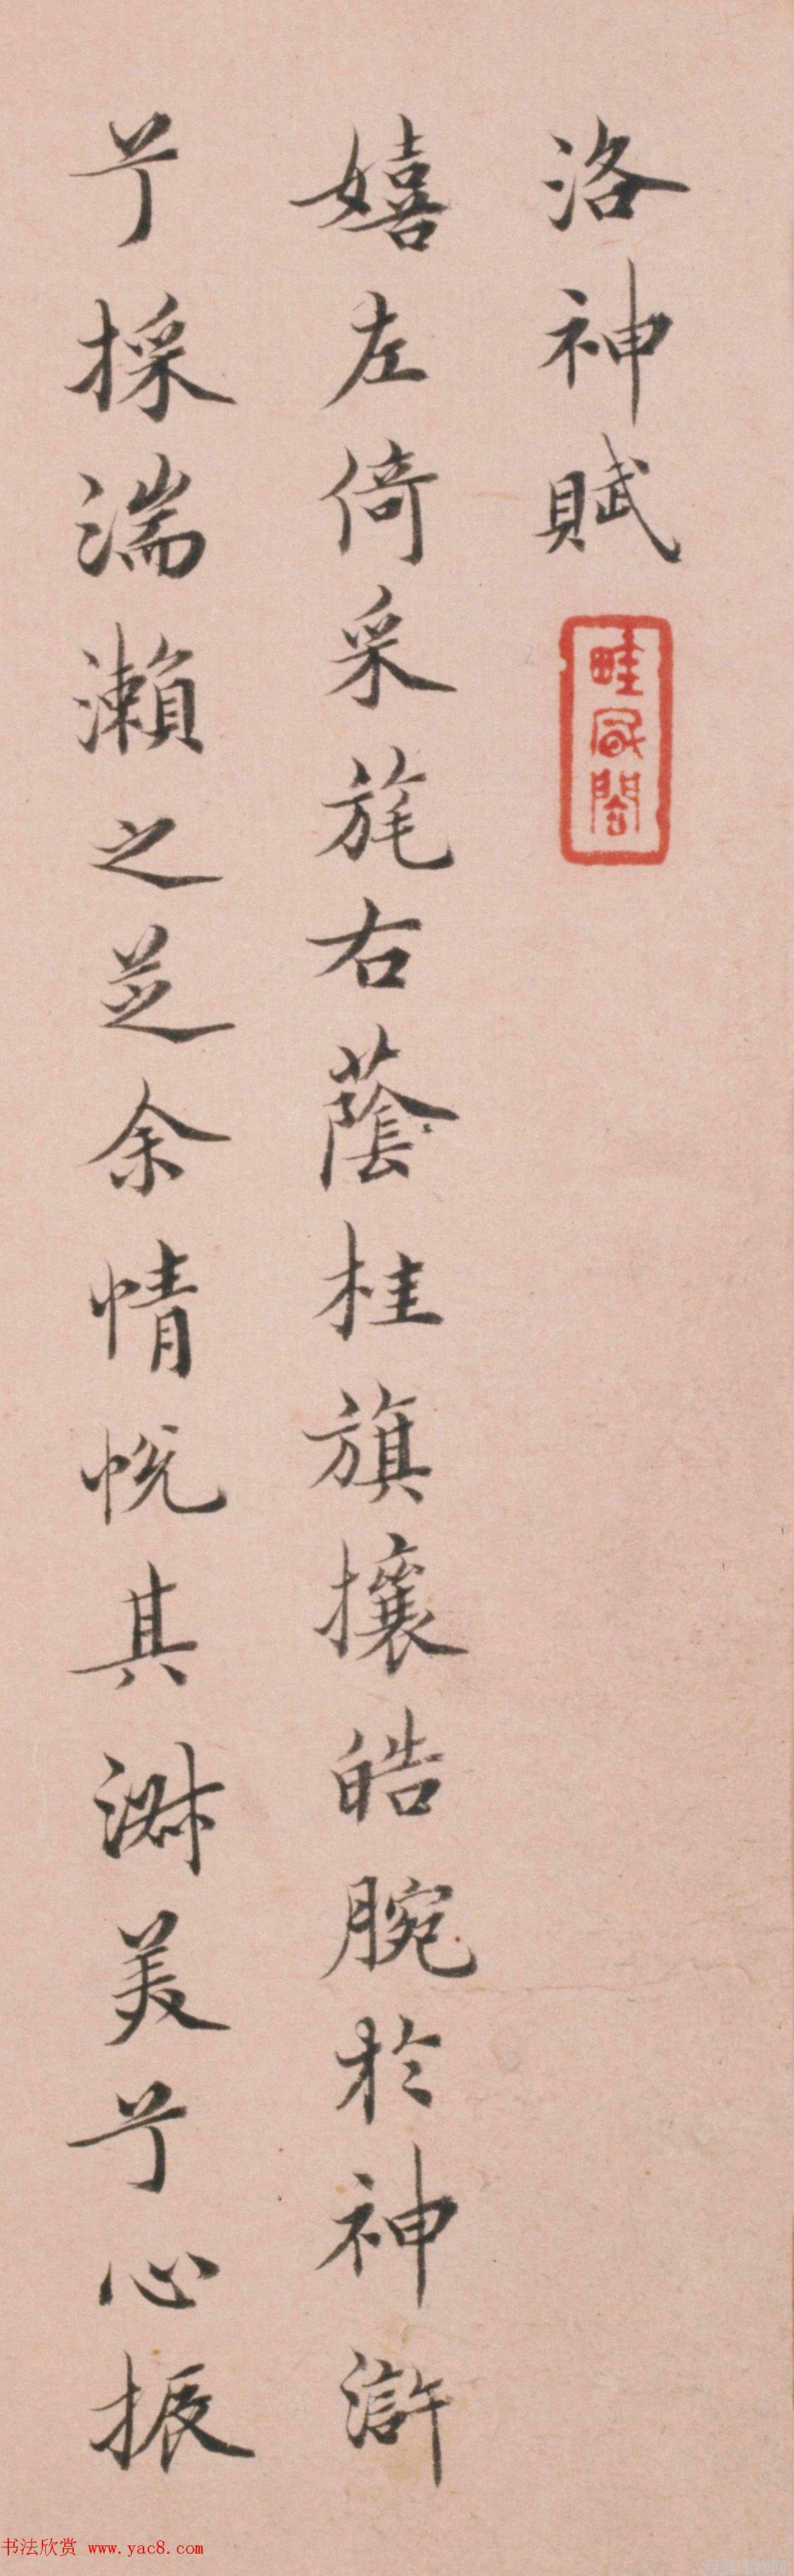 洛神賦
嬉左倚采旄右蔭桂旗攘皓腕於神滸
兮採湍瀨之芝余情悅其淑美兮心振
书法欣赏 www.yac8.com